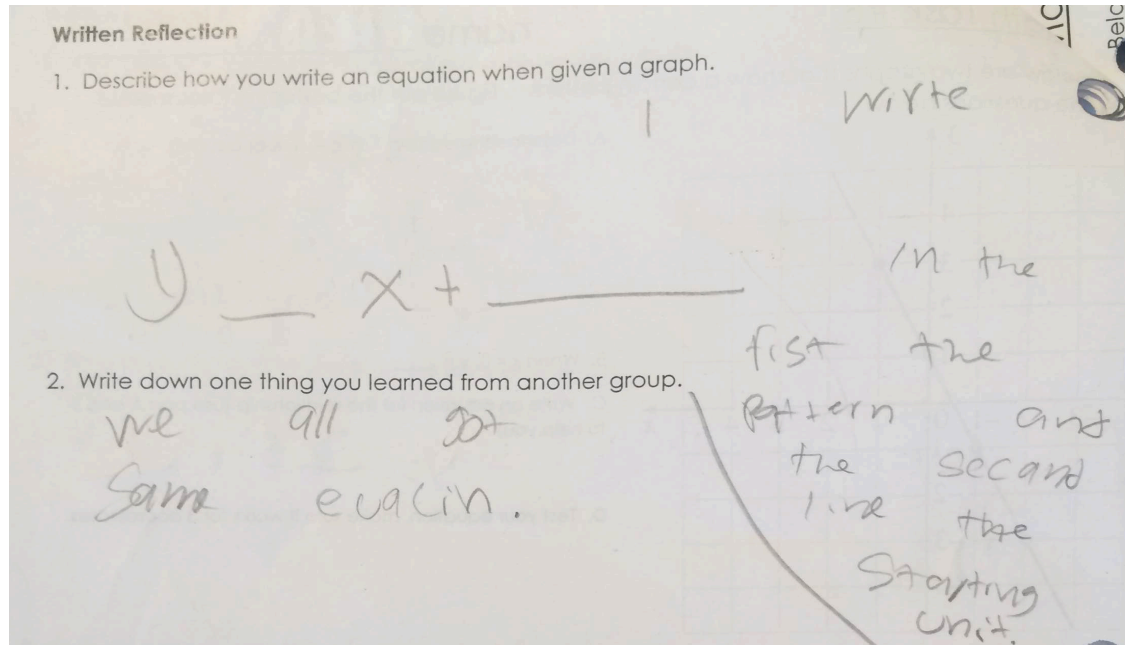 Written Reflection
1. Describe how you write an equation when given a graph.
I write
y __ x + ________
in the
fist the
pattern and
the secand
line the
Starting
unit.
2. Write down one thing you learned from another group.
we all got
Same evacin.
Belo